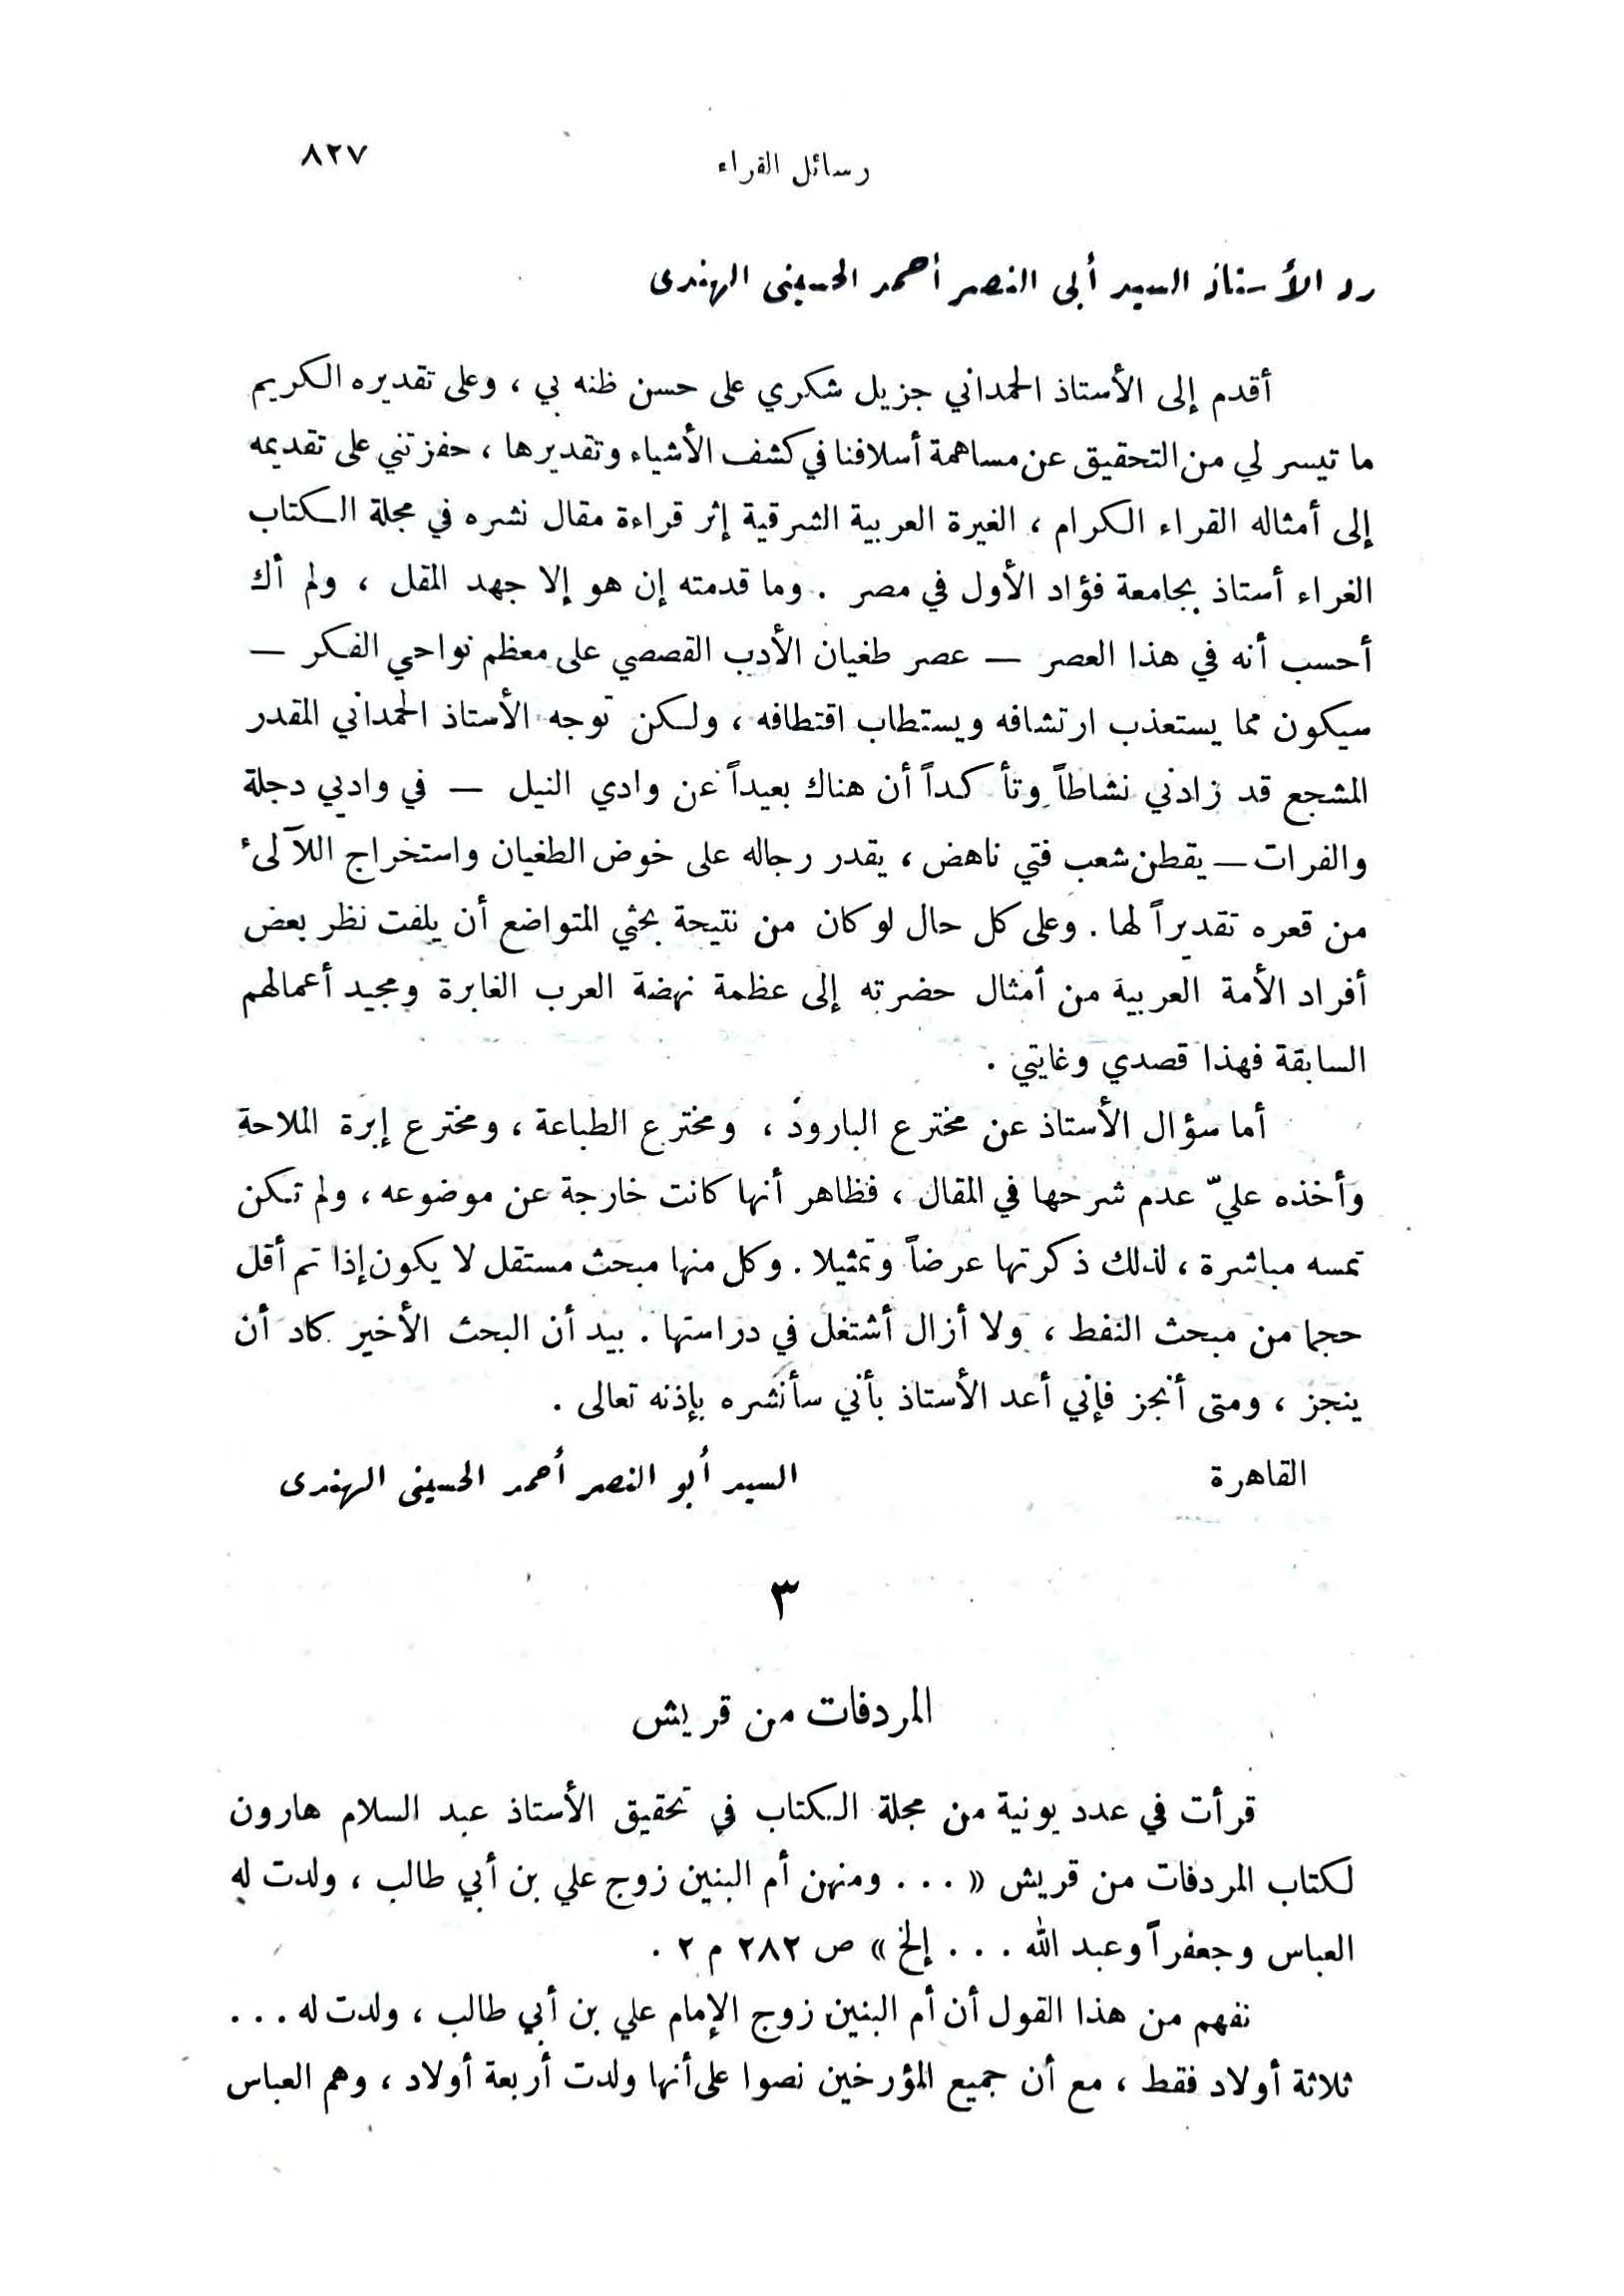 رسائل القراء ٨٢٧
رد الأستاذ السيد أبى النصر أحمد الحسينى الهندى
أقدم إلى الأستاذ الحمداني جزيل شكري على حسن ظنه بي ، وعلى تقديره الكريم
ما تيسر لي من التحقيق عن مساهمة أسلافنا في كشف الأشياء وتقديرها ، حفزتني على تقديمه
إلى أمثاله القراء الكرام ، الغيرة العربية الشرقية إثر قراءة مقال نشره في مجلة الكتاب
الغراء أستاذ بجامعة فؤاد الأول في مصر . وما قدمته إن هو إلا جهد المقل ، ولم أك
أحسب أنه في هذا العصر — عصر طغيان الأدب القصصي على معظم نواحي الفكر —
سيكون مما يستعذب ارتشافه ويستطاب اقتطافه ، ولكن توجه الأستاذ الحمداني المقدر
المشجع قد زادني نشاطاً وتأكداً أن هناك بعيداً عن وادي النيل — في واديي دجلة
والفرات — يقطن شعب فتي ناهض ، يقدر رجاله على خوض الطغيان واستخراج اللآلىء
من قعره تقديراً لها . وعلى كل حال لو كان من نتيجة بحثي المتواضع أن يلفت نظر بعض
أفراد الأمة العربية من أمثال حضرته إلى عظمة نهضة العرب الغابرة ومجيد أعمالهم
السابقة فهذا قصدي وغايتي .
أما سؤال الأستاذ عن مخترع البارود ، ومخترع الطباعة ، ومخترع إبرة الملاحة
وأخذه عليّ عدم شرحها في المقال ، فظاهر أنها كانت خارجة عن موضوعه ، ولم تكن
تمسه مباشرة ، لذلك ذكرتها عرضاً وتمثيلا . وكل منها مبحث مستقل لا يكون إذا تم أقل
حجما من مبحث النفط ، ولا أزال أشتغل في دراستها . بيد أن البحث الأخير كاد أن
ينجز ، ومتى أنجز فإني أعد الأستاذ بأني سأنشره بإذنه تعالى .
القاهرة السيد أبو النصر أحمد الحسينى الهندى
٣
المردفات من قريش
قرأت في عدد يونية من مجلة الكتاب في تحقيق الأستاذ عبد السلام هارون
لكتاب المردفات من قريش « . . . ومنهن أم البنين زوج علي بن أبي طالب ، ولدت له
العباس وجعفراً وعبد الله . . . إلخ » ص ٢٨٢ م ٢ .
نفهم من هذا القول أن أم البنين زوج الإمام علي بن أبي طالب ، ولدت له . . .
ثلاثة أولاد فقط ، مع أن جميع المؤرخين نصوا على أنها ولدت أربعة أولاد ، وهم العباس